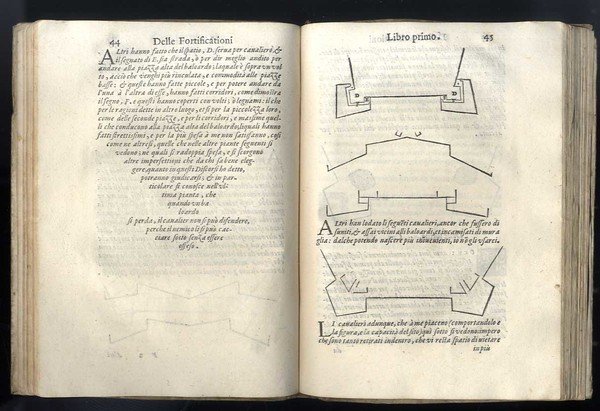 44
Delle Fortificationi
ALtri hanno fatto che il spatio, D. serua per canalierò, &
il segnato di E. sia strada, ò per dir meglio andito per
andare alla piazza alta del baloardo; laquale è sopra vn vol
to, acciò che venghi più rinculata, e commodità alle piazze
basse: & queste hanno fatte piccole, e per potere andar da
l'una à l'altra di esse, hanno fatti corridori, come dimostra
il segno, F. e questi hanno coperti con volti, ò legnami: il che
per le ragioni dette in altro luogo, et si per la piccolezza loro,
come delle seconde piazze, e per li corridori, e maßime quel
li che conducono alla piazza alta del baloardo liquali hanno
fatti strettissimi, e per la più spesa à me non satisfanno, così
come ne altresi, quelle che nelle altre piante seguenti si
vedono: ne quali si radoppia spesa, e si scorgono
altre imperfettioni che da chi sa bene eleg-
gere, quanto in questi Discorsi ho detto,
potranno giudicarsi; & in par-
ticolare si conosce nell'vl-
tima pianta, che
quando vn ba
loardo
si perda, il canalier non si può difendere,
perche il nemico lo si può cac-
ciare sotto senza essere
offeso.
Libro primo.
45
ALtri han lodato li seguēti canalieri, ancor che fussero di
suniti, & assai vicini alli baloardi, et incamisati di mura
glia: dalche potendo nascere più incōuenienti, io nō gli vsarei.
LI canalieri adunque, che à me piaceno scompartendole
la figura, e la capacità del sito, qui sotto si vedono: impero
che sono tanto retirati indentro, che vi resta spatio di vietare
in più